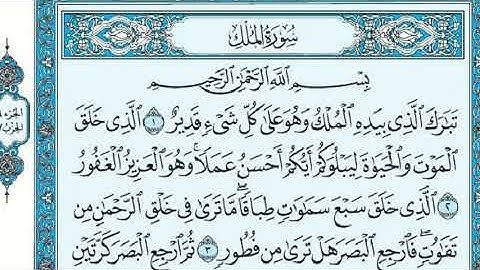 سُورَةُ المُلْكِ
بِسْمِ اللَّهِ الرَّحْمَٰنِ الرَّحِيمِ
تَبَارَكَ الَّذِي بِيَدِهِ الْمُلْكُ وَهُوَ عَلَىٰ كُلِّ شَيْءٍ قَدِيرٌ ١ الَّذِي خَلَقَ
الْمَوْتَ وَالْحَيَوٰةَ لِيَبْلُوَكُمْ أَيُّكُمْ أَحْسَنُ عَمَلًا ۚ وَهُوَ الْعَزِيزُ الْغَفُورُ
٢ الَّذِي خَلَقَ سَبْعَ سَمَٰوَٰتٍ طِبَاقًا ۖ مَّا تَرَىٰ فِي خَلْقِ الرَّحْمَٰنِ مِن
تَفَٰوُتٍ ۖ فَارْجِعِ الْبَصَرَ هَلْ تَرَىٰ مِن فُطُورٍ ٣ ثُمَّ ارْجِعِ الْبَصَرَ كَرَّتَيْنِ